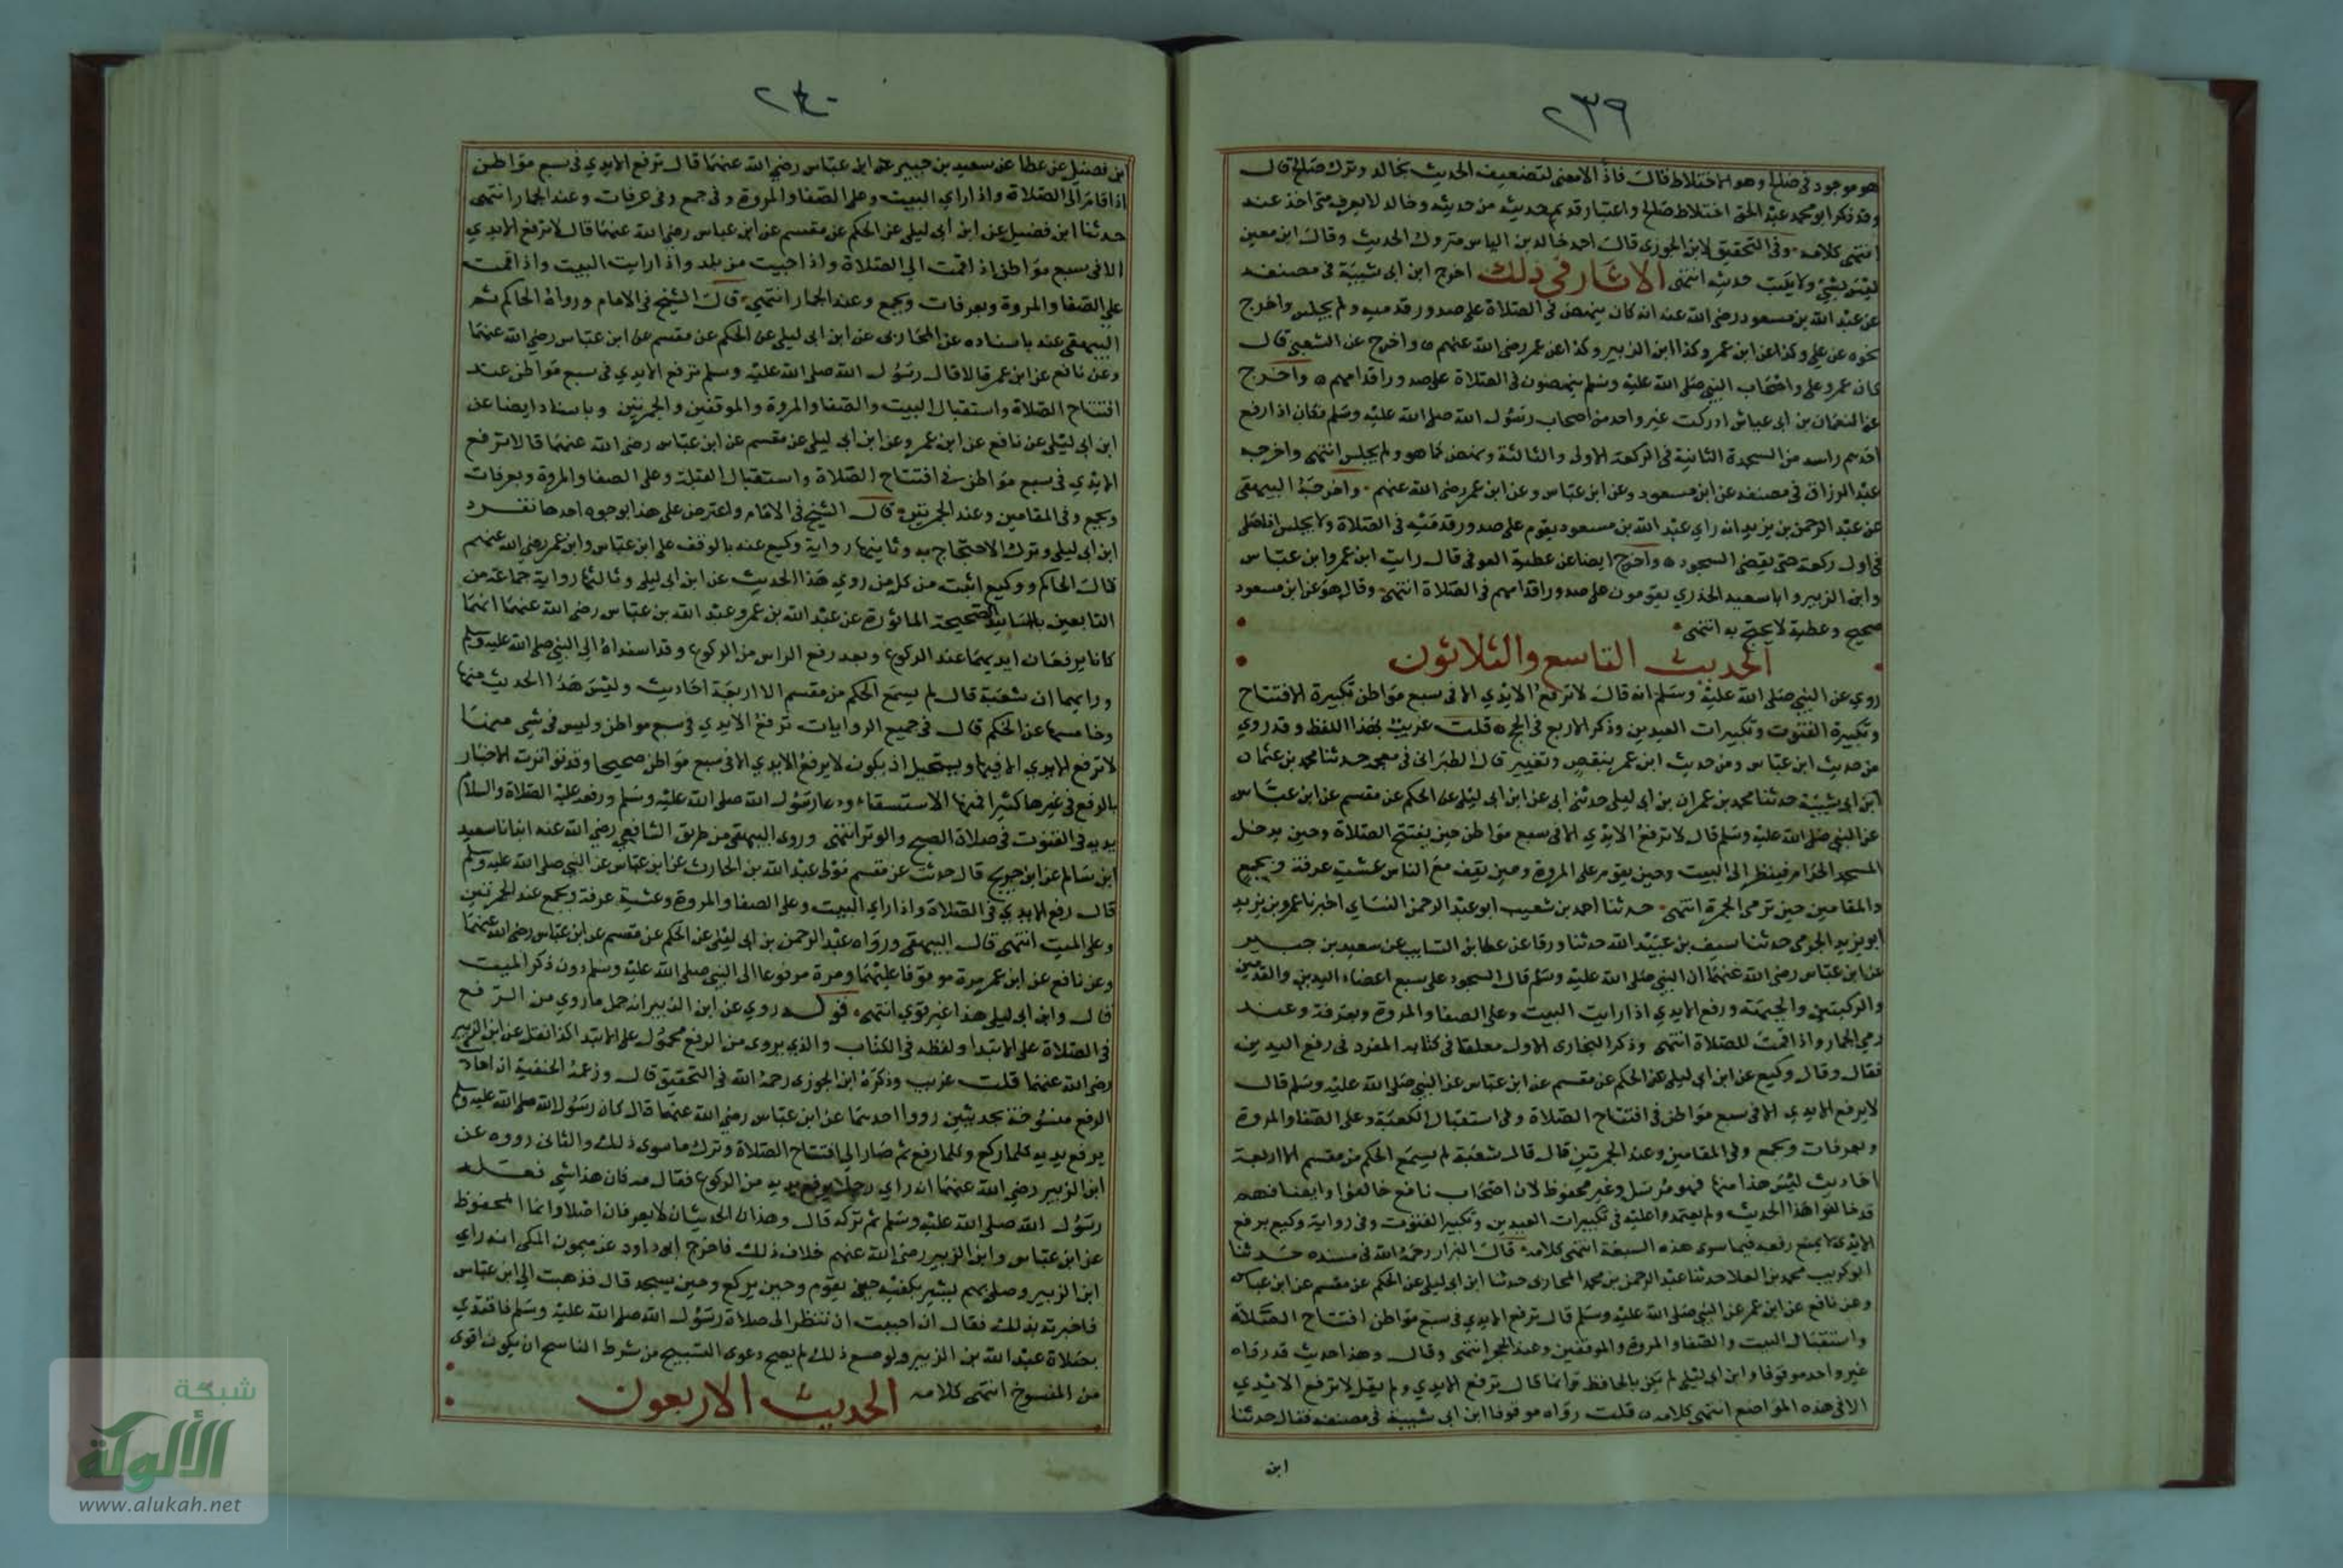 ٢٣٩
هو موجود في صالح وهو الاختلاط قال فاذا لا معنى لتضعيف الحديث بخالد وترك صالح قال
وقد ذكر ابو محمد عبد الحق اختلاط صالح واعتبار قديم حديثه من حديثه وخالد لا يعرف متى اخذ عنه
انتهى كلامه وفي التحقيق لابن الجوزي قال احمد خالد بن الياس متروك الحديث وقال ابن معين
ليس بشي ولا يكتب حديثه انتهى الاثار في ذلك اخرج ابن ابي شيبة في مصنفه
عن عبد الله بن مسعود رضي الله عنه انه كان ينهض في الصلاة على صدور قدميه ولم يجلس واخرج
نحوه عن علي وكذا عن ابن عمر وكذا ابن الزبير وكذا عن عمر رضي الله عنهم واخرج عن الشعبي قال
كان عمر وعلي واصحاب النبي صلى الله عليه وسلم ينهضون في الصلاة على صدور اقدامهم واخرج
عن النعمان بن ابي عياش ادركت غير واحد من اصحاب رسول الله صلى الله عليه وسلم فكان اذا رفع
احدهم راسه من السجدة الثانية في الركعة الاولى والثالثة ونهض كما هو ولم يجلس انتهى واخرجه
عبد الرزاق في مصنفه عن ابن مسعود وعن ابن عباس وعن ابن عمر رضي الله عنهم واخرجه البيهقي
عن عبد الرحمن بن يزيد انه راي عبد الله بن مسعود يقوم على صدور قدميه في الصلاة ولا يجلس اذا صلى
في اول ركعة حتى يقضي السجود واخرج ايضا عن عطية العوفي قال رايت ابن عمر وابن عباس
وابن الزبير وابا سعيد الخدري يقومون على صدور اقدامهم في الصلاة انتهى وقال هو عن ابن مسعود
صحيح وعطية لا يحتج به انتهى
الحديث التاسع والثلاثون
روي عن النبي صلى الله عليه وسلم انه قال لا ترفع الايدي الا في سبع مواطن تكبيرة الافتتاح
وتكبيرة القنوت وتكبيرات العيدين وذكر الاربع في الحج قلت غريب بهذا اللفظ وقد روي
من حديث ابن عباس ومن حديث ابن عمر بنقص وتغيير قال الطبراني في معجمه حدثنا محمد بن عثمان
ابن ابي شيبة حدثنا محمد بن عمران بن ابي ليلى حدثني ابي عن ابن ابي ليلى عن الحكم عن مقسم عن ابن عباس
عن النبي صلى الله عليه وسلم قال لا ترفع الايدي الا في سبع مواطن حين يفتتح الصلاة وحين يدخل
المسجد الحرام فينظر الى البيت وحين يقوم على المروة وحين يقف مع الناس عشية عرفة وبجمع
والمقامين حين ترمي الجمرة انتهى حدثنا احمد بن شعيب ابو عبد الرحمن النساي اخبرنا عمرو بن يزيد
ابو يزيد الجرمي حدثنا سيف بن عبيد الله حدثنا ورقا عن عطا بن السايب عن سعيد بن جبير
عن ابن عباس رضي الله عنهما ان النبي صلى الله عليه وسلم قال السجود على سبع اعضاء اليدين والقدمين
والركبتين والجبهة ورفع الايدي اذا رايت البيت وعلى الصفا والمروة وبعرفة وعند
رمي الجمار واذا اقمت للصلاة انتهى وذكر البخاري الاول معلقا في كتابه المفرد في رفع اليدين
فقال وقال وكيع عن ابن ابي ليلى عن الحكم عن مقسم عن ابن عباس عن النبي صلى الله عليه وسلم قال
لا يرفع الايدي الا في سبع مواطن في افتتاح الصلاة وفي استقبال الكعبة وعلى الصفا والمروة
وبعرفات وبجمع وفي المقامين وعند الجمرتين قال قال شعبة لم يسمع الحكم من مقسم الا اربعة
احاديث ليس هذا منها فهو مرسل وغير محفوظ لان اصحاب نافع خالفوا وايضا فهم
قد خالفوا هذا الحديث ولم يعتمدوا عليه في تكبيرات العيدين وتكبير القنوت وفي رواية وكيع يرفع
الايدي لا يمنع رفعه فيما سوى هذه السبعة انتهى كلامه قال البزار رحمه الله في مسنده حدثنا
ابو كريب محمد بن العلا حدثنا عبد الرحمن بن محمد المحاربي حدثنا ابن ابي ليلى عن الحكم عن مقسم عن ابن عباس
وعن نافع عن ابن عمر عن النبي صلى الله عليه وسلم قال ترفع الايدي في سبع مواطن افتتاح الصلاة
واستقبال البيت والصفا والمروة والموقفين وعند الحجر انتهى وقال وهذا حديث قد رواه
غير واحد موقوفا وابن ابي ليلى لم يكن بالحافظ وانما قال ترفع الايدي ولم يقل لا ترفع الايدي
الا في هذه المواضع انتهى كلامه قلت رواه موقوفا ابن ابي شيبة في مصنفه فقال حدثنا
ابن
٢٤٠
ابن فضيل عن عطا عن سعيد بن جبير عن ابن عباس رضي الله عنهما قال ترفع الايدي في سبع مواطن
اذا قام الى الصلاة واذا راي البيت وعلى الصفا والمروة وفي جمع وفي عرفات وعند الجمار انتهى
حدثنا ابن فضيل عن ابن ابي ليلى عن الحكم عن مقسم عن ابن عباس رضي الله عنهما قال لا ترفع الايدي
الا في سبع مواطن اذا قمت الى الصلاة واذا جيت من بلد واذا رايت البيت واذا قمت
على الصفا والمروة وبعرفات وبجمع وعند الجمار انتهى قال الشيخ في الامام ورواه الحاكم ثم
البيهقي عنه باسناده عن المحاربي عن ابن ابي ليلى عن الحكم عن مقسم عن ابن عباس رضي الله عنهما
وعن نافع عن ابن عمر قالا قال رسول الله صلى الله عليه وسلم ترفع الايدي في سبع مواطن عند
افتتاح الصلاة واستقبال البيت والصفا والمروة والموقفين والجمرتين وباسناد ايضا عن
ابن ابي ليلى عن نافع عن ابن عمر وعن ابن ابي ليلى عن مقسم عن ابن عباس رضي الله عنهما قالا ترفع
الايدي في سبع مواطن في افتتاح الصلاة واستقبال القبلة وعلى الصفا والمروة وبعرفات
وبجمع وفي المقامين وعند الجمرتين قال الشيخ في الامام واعترض على هذا بوجوه احدها تفرد
ابن ابي ليلى وترك الاحتجاج به وثانيها رواية وكيع عنه بالوقف على ابن عباس وابن عمر رضي الله عنهم
قال الحاكم ووكيع اثبت من كل من روي هذا الحديث عن ابن ابي ليلى وثالثها رواية جماعة من
التابعين بالاسانيد الصحيحة الماثورة عن عبد الله بن عمر وعبد الله بن عباس رضي الله عنهما انهما
كانا يرفعان ايديهما عند الركوع وبعد رفع الراس من الركوع وقد اسنداه الى النبي صلى الله عليه وسلم
ورابعها ان شعبة قال لم يسمع الحكم من مقسم الا اربعة احاديث وليس هذا الحديث منها
وخامسها عن الحكم قال في جميع الروايات ترفع الايدي في سبع مواطن وليس في شي منها
لا ترفع الايدي الا فيها ويستحيل ان يكون لا يرفع الايدي الا في سبع مواطن صحيحا وقد تواترت الاخبار
بالرفع في غيرها كثيرا فمنها الاستسقاء ودعا رسول الله صلى الله عليه وسلم ورفعه عليه الصلاة والسلام
يديه في القنوت في صلاة الصبح والوتر انتهى وروى البيهقي من طريق الشافعي رضي الله عنه انبانا سعيد
ابن سالم عن ابن جريج قال حدثت عن مقسم مولى عبد الله بن الحارث عن ابن عباس عن النبي صلى الله عليه وسلم
قال رفع الايدي في الصلاة واذا راي البيت وعلى الصفا والمروة وعشية عرفة وبجمع عند الجمرتين
وعلى الميت انتهى قال البيهقي ورواه عبد الرحمن بن ابي ليلى عن الحكم عن مقسم عن ابن عباس رضي الله عنهما
وعن نافع عن ابن عمر مرة موقوفا عليهما ومرة مرفوعا الى النبي صلى الله عليه وسلم دون ذكر الميت
قال وابن ابي ليلى هذا غير قوي انتهى قوله روي عن ابن الزبير انه حمل ما روي من الرفع
في الصلاة على الابتدا ولفظه في الكتاب والذي يروى من الرفع محمول على الابتدا كذا نقل عن ابن الزبير
رضي الله عنهما قلت غريب وذكره ابن الجوزي رحمه الله في التحقيق قال وزعمه الحنفية ان احاديث
الرفع منسوخة بحديثين رووا احدهما عن ابن عباس رضي الله عنهما قال كان رسول الله صلى الله عليه وسلم
يرفع يديه كلما ركع وكلما رفع ثم صار الى افتتاح الصلاة وترك ما سوى ذلك والثاني رووه عن
ابن الزبير رضي الله عنهما انه راي رجلا يرفع يديه من الركوع فقال مه فان هذا شي فعله
رسول الله صلى الله عليه وسلم ثم تركه قال وهذان الحديثان لا يعرفان اصلا وانما المحفوظ
عن ابن عباس وابن الزبير رضي الله عنهم خلاف ذلك فاخرج ابو داود عن ميمون المكي انه راي
ابن الزبير وصلى بهم يشير بكفيه حين يقوم وحين يركع وحين يسجد قال فذهبت الى ابن عباس
فاخبرته بذلك فقال ان احببت ان تنظر الى صلاة رسول الله صلى الله عليه وسلم فاقتدي
بصلاة عبد الله بن الزبير ولو صح ذلك لم يصح دعوى النسخ من شرط الناسخ ان يكون اقوى
من المنسوخ انتهى كلامه الحديث الاربعون
شبكة
الألوكة
www.alukah.net